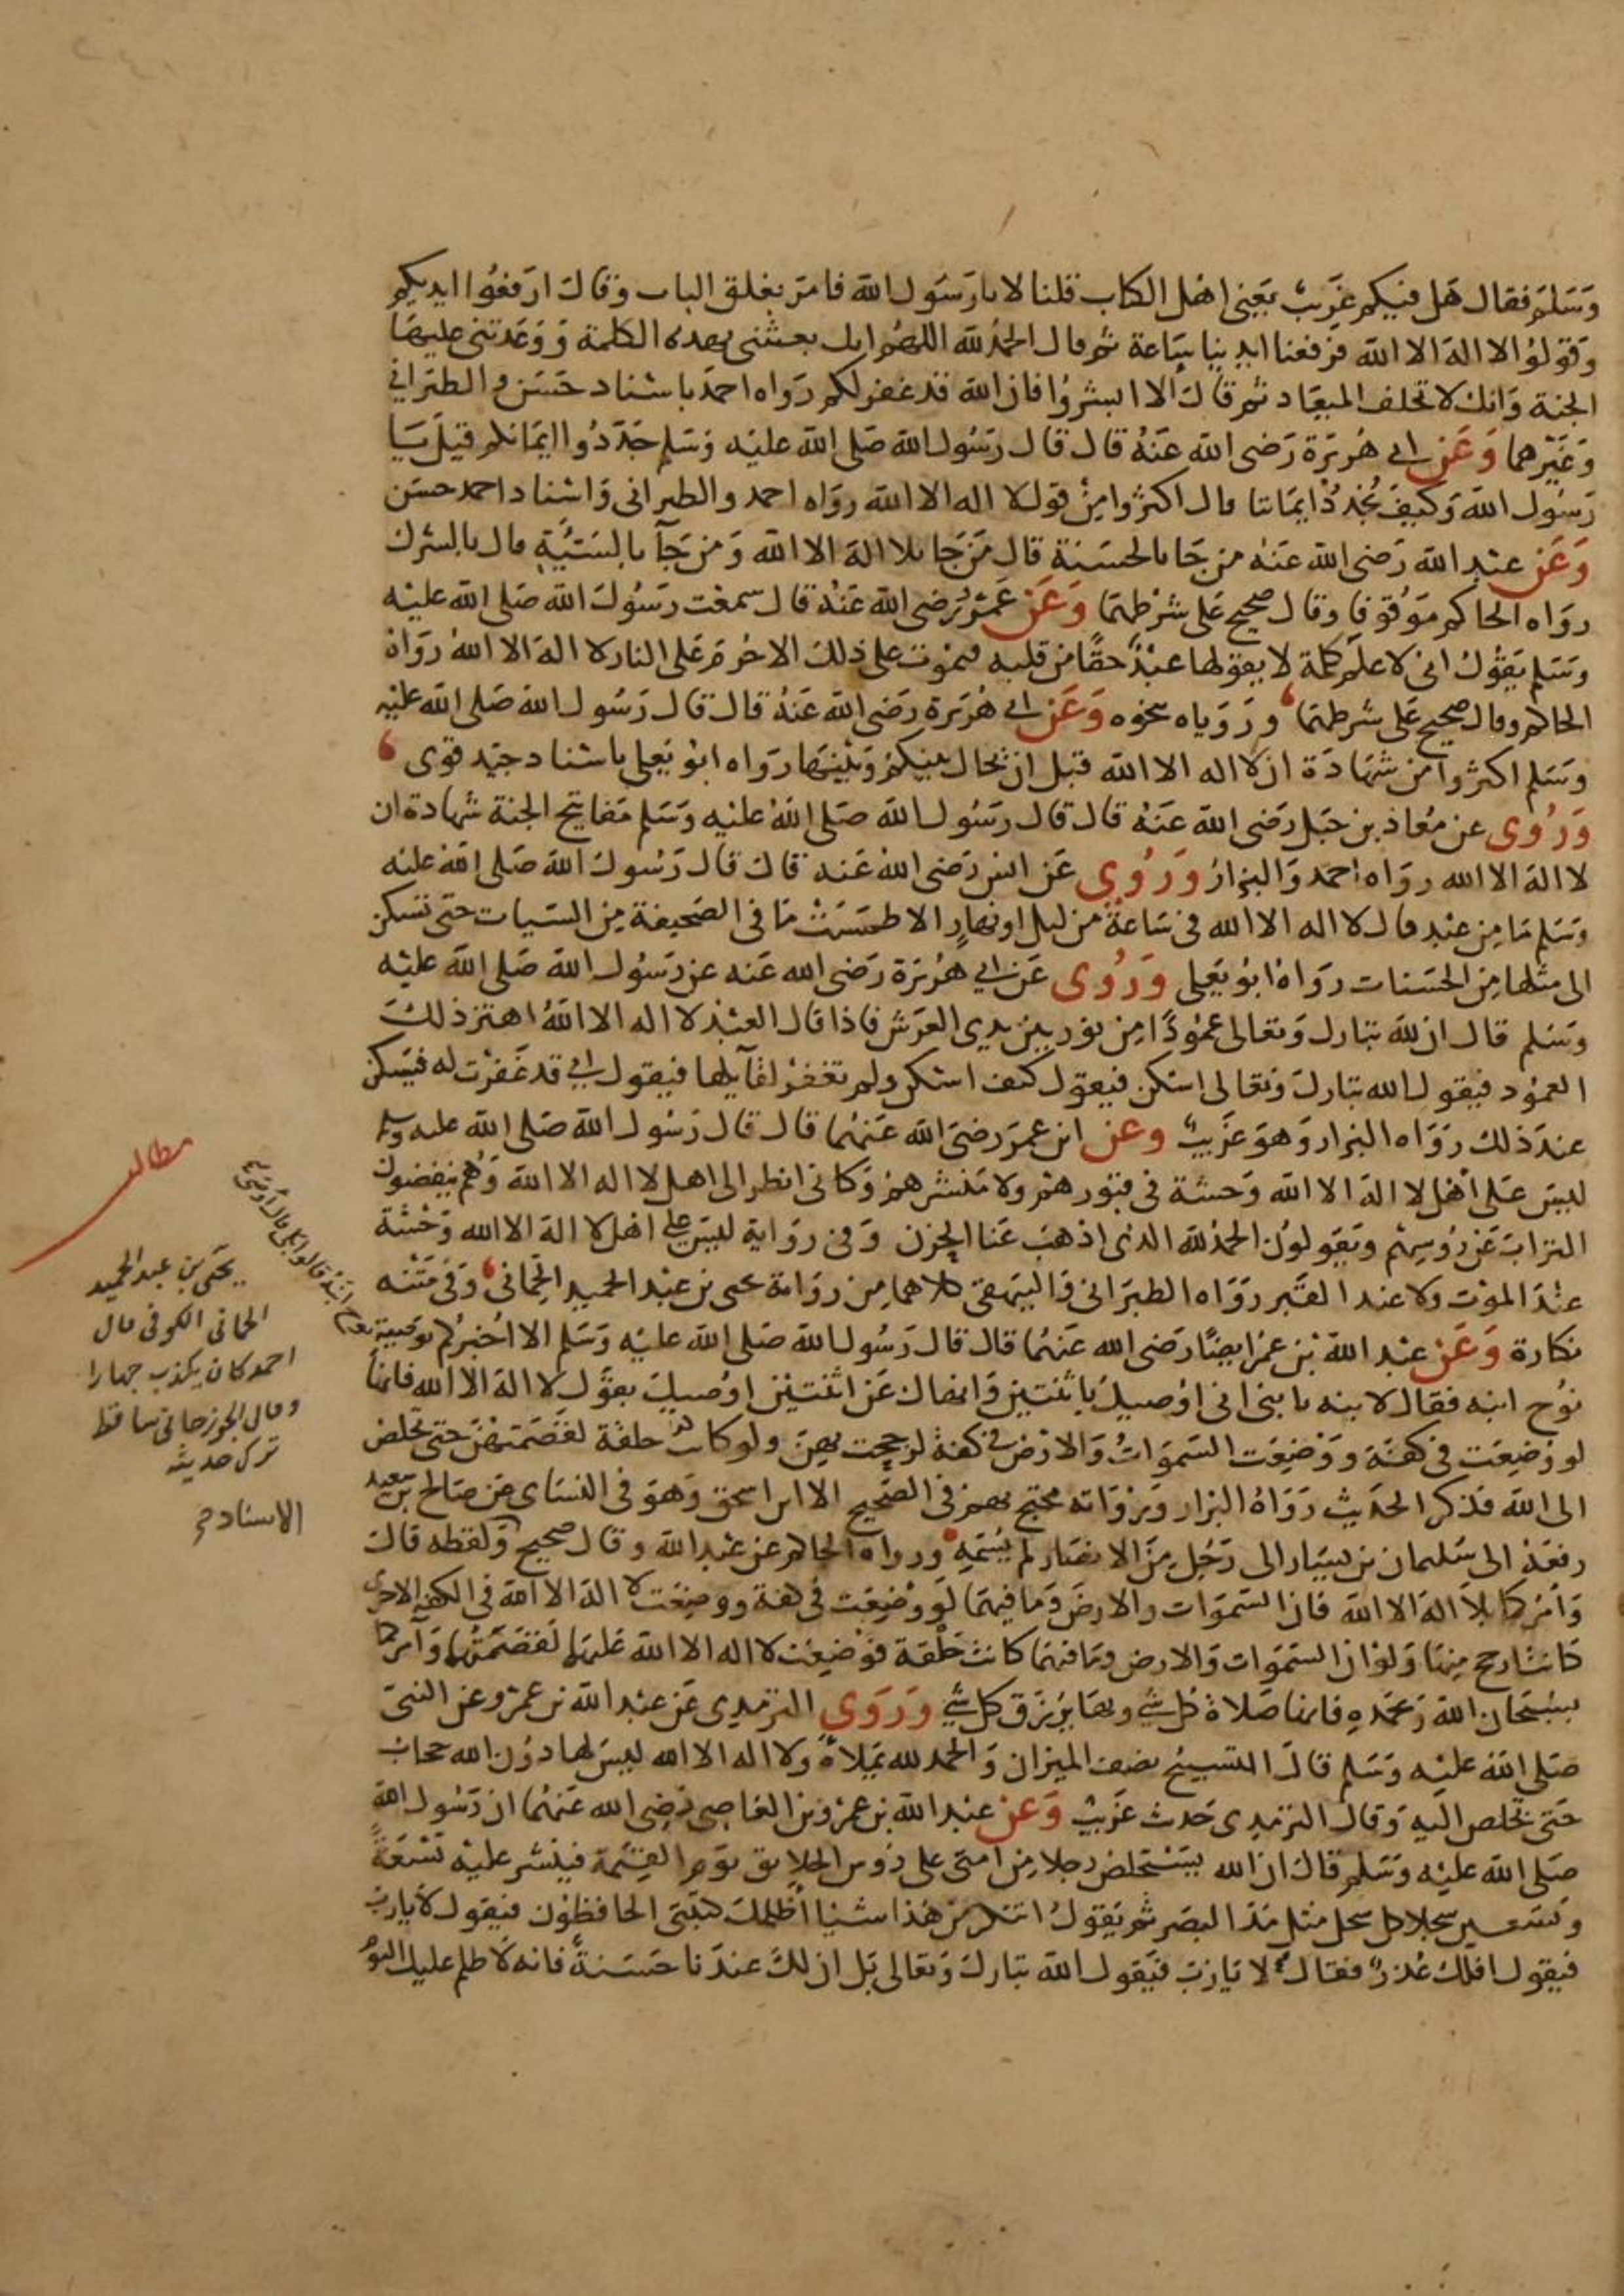 وسلم فقال هل فيكم غريب يعنى اهل الكتاب قلنا لا يا رسول الله فامر بغلق الباب وقال ارفعوا ايديكم
وقولوا لا اله الا الله فرفعنا ايدينا ساعة ثم قال الحمد لله اللهم انك بعثتنى بهذه الكلمة ووعدتنى عليها
الجنة وانك لا تخلف الميعاد ثم قال الا ابشروا فان الله قد غفر لكم رواه احمد باسناد حسن والطبرانى
وغيرهما وعن ابى هريرة رضى الله عنه قال قال رسول الله صلى الله عليه وسلم جددوا ايمانكم قيل يا
رسول الله وكيف نجدد ايماننا قال اكثروا من قول لا اله الا الله رواه احمد والطبرانى واسناد احمد حسن
وعن عبد الله رضى الله عنه من جا بالحسنة قال من جا بلا اله الا الله ومن جآ بالسيئة قال بالشرك
رواه الحاكم موقوفا وقال صحيح على شرطهما وعن عمر رضى الله عنه قال سمعت رسول الله صلى الله عليه
وسلم يقول انى لاعلم كلمة لا يقولها عبد حقا من قلبه فيموت على ذلك الا حرم على النار لا اله الا الله رواه
الحاكم وقال صحيح على شرطهما وروياه بنحوه وعن ابى هريرة رضى الله عنه قال قال رسول الله صلى الله عليه
وسلم اكثروا من شهادة ان لا اله الا الله قبل ان يحال بينكم وبينها رواه ابو يعلى باسناد جيد قوى
وروى عن معاذ بن جبل رضى الله عنه قال قال رسول الله صلى الله عليه وسلم مفاتيح الجنة شهادة ان
لا اله الا الله رواه احمد والبزار وروى عن انس رضى الله عنه قال قال رسول الله صلى الله عليه
وسلم ما من عبد قال لا اله الا الله فى ساعة من ليل او نهار الا طمست ما فى الصحيفة من السيات حتى تسكن
الى مثلها من الحسنات رواه ابو يعلى وروى عن ابى هريرة رضى الله عنه عن رسول الله صلى الله عليه
وسلم قال ان لله تبارك وتعالى عمودا من نور بين يدى العرش فاذا قال العبد لا اله الا الله اهتز ذلك
العمود فيقول الله تبارك وتعالى اسكن فيقول كيف اسكن ولم تغفر لقآيلها فيقول انى قد غفرت له فيسكن
عند ذلك رواه البزار وهو غريب وعن ابن عمر رضى الله عنهما قال قال رسول الله صلى الله عليه وسلم
ليس على اهل لا اله الا الله وحشة فى قبورهم ولا منشرهم وكانى انظر الى اهل لا اله الا الله وهم ينفضون
التراب عن روسهم ويقولون الحمد لله الذى اذهب عنا الحزن وفى رواية ليس على اهل لا اله الا الله وحشة
عند الموت ولا عند القبر رواه الطبرانى والبيهقى كلاهما من رواية يحيى بن عبد الحميد الحمانى وفى متنه
نكارة وعن عبد الله بن عمر ايضا رضى الله عنهما قال قال رسول الله صلى الله عليه وسلم الا اخبركم بوصية
نوح ابنه فقال لابنه يا بنى انى اوصيك باثنتين وانهاك عن اثنتين اوصيك بقول لا اله الا الله فانها
لو وضعت فى كفة ووضعت السموات والارض فى كفة لرجحت بهن ولو كانت حلقة لقصمتهن حتى تخلص
الى الله فذكر الحديث رواه البزار ورواته محتج بهم فى الصحيح الا ابن اسحق وهو فى النساى عن صالح بن سعيد
رفعه الى سليمان بن يسار الى رجل من الانصار لم يسمه ورواه الحاكم عن عبد الله وقال صحيح ولفظه قال
وآمركما بلا اله الا الله فان السموات والارض وما فيهما لو وضعت فى كفة ووضعت لا اله الا الله فى الكفة الاخرى
كانت ارجح منها ولو ان السموات والارض وما فيهما كانت حلقة فوضعت لا اله الا الله عليها لقصمتها وآمركما
بسبحان الله وبحمده فانها صلاة كل شي وبها يرزق كل شي وروى الترمذى عن عبد الله بن عمرو عن النبى
صلى الله عليه وسلم قال التسبيح نصف الميزان والحمد لله تملاه ولا اله الا الله ليس لها دون الله حجاب
حتى تخلص اليه وقال الترمذى حديث غريب وعن عبد الله بن عمرو بن العاصى رضى الله عنهما ان رسول الله
صلى الله عليه وسلم قال ان الله يستخلص رجلا من امتى على روس الخلايق يوم القيمة فينشر عليه تسعة
وتسعين سجلا كل سجل مثل مد البصر ثم يقول اتنكر من هذا شيئا اظلمك كتبتى الحافظون فيقول لا يا رب
فيقول افلك عذر فقال لا يا رب فيقول الله تبارك وتعالى بل ان لك عندنا حسنة فانه لا ظلم عليك اليوم
مطالب
يحيى بن عبد الحميد
الحمانى الكوفى قال
احمد كان يكذب جهارا
وقال الجوزجانى ساقط
ترك حديثه
الاسناد